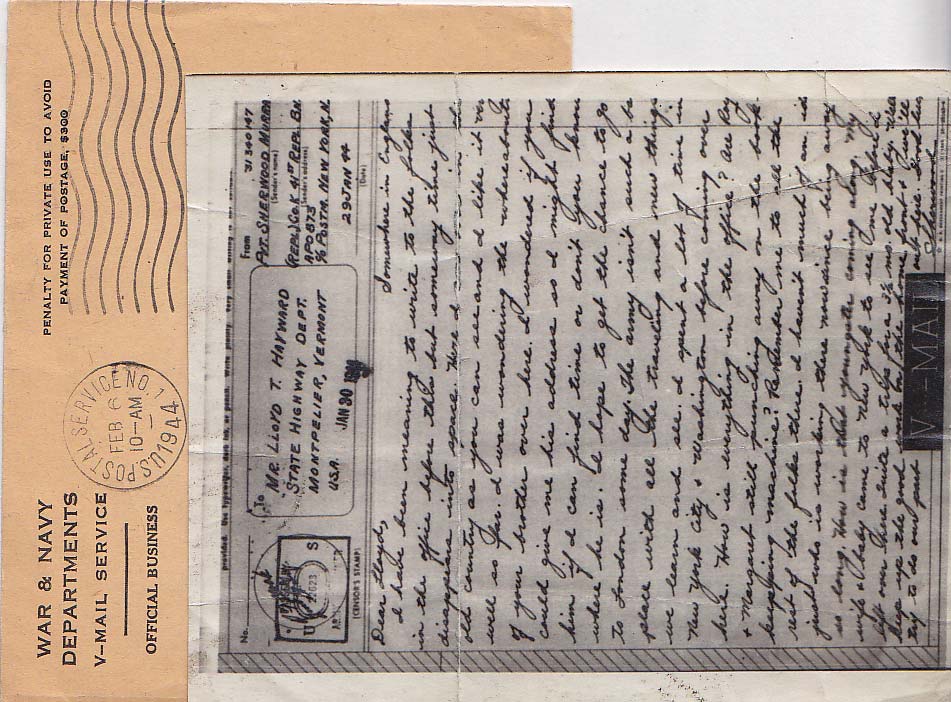 WAR & NAVY
DEPARTMENTS
V-MAIL SERVICE
OFFICIAL BUSINESS
U.S. POSTAL SERVICE NO. 1
FEB 6
10-AM
1944
PENALTY FOR PRIVATE USE TO AVOID
PAYMENT OF POSTAGE, $300
No.
(CENSOR'S STAMP)
To
MR. LLOYD T. HAYWARD
STATE HIGHWAY DEPT.
MONTPELIER, VERMONT
U.S.A.
JAN 30
From
PVT. SHERWOOD 31340147
(Sender's name)
REPL. CO. K 41ST REPL. BN.
(Sender's address)
APO 873
c/o POSTM. NEW YORK, N.
29 JAN 44
(Date)
Somewhere in England
Dear Lloyd,
I have been meaning to write to the folks
in the office before this but some my time just
disappears into space. Here I am in
old country as you can see and I like it very
well so far. I was wondering the whereabouts
of your brother over here. I wondered if you
could give me his address so I might find
him if I can find time or don't you know
where he is. I hope to get the chance to go
to London some day. The army isn't such a b
place with all the traveling and new things
we learn and see. I spent a lot of time in
New York City & Washington before coming over
here. How is everything in the office? Are Ray
& Margaret still punching away on the book-
keeping machine? Remember me to all the
rest of the folks there. I haven't much of an id
just who is working there now since being away
so long. How is that youngster coming along. My
wife & baby came to New York to see me before I
left over there. Quite a trip for a 3½ mo. old baby. Well
keep up the good work on the home front & we'll
try to do our part out here. Good luck
Sherwood
V-MAIL